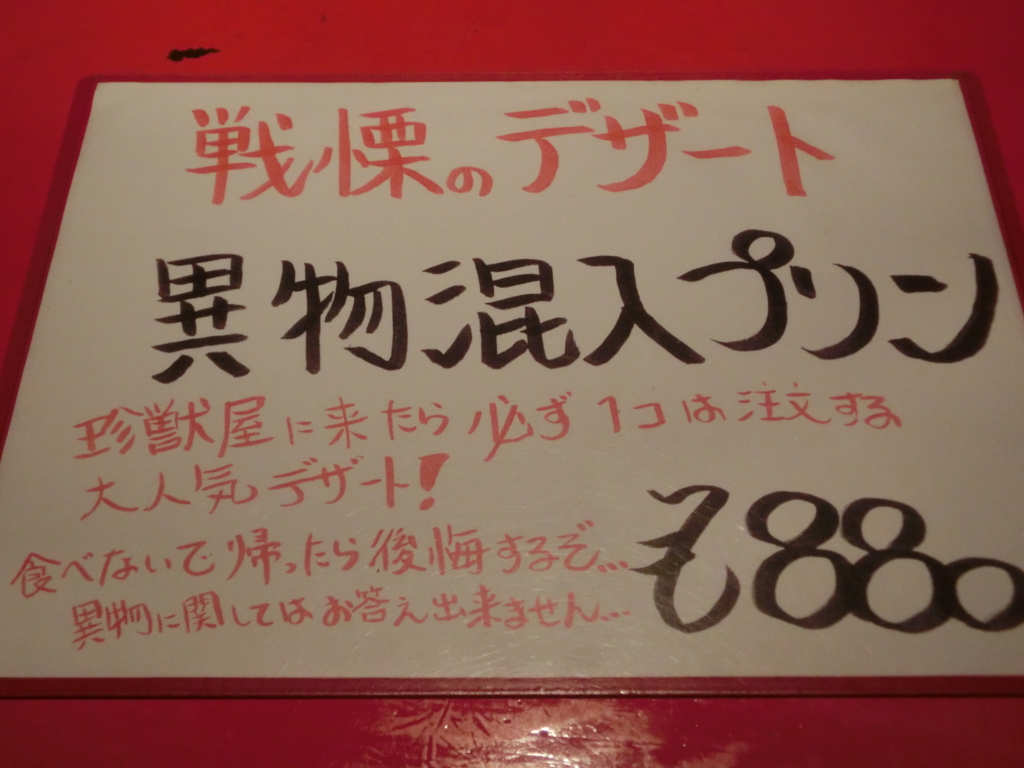 戦慄のデザート
異物混入プリン
珍獣屋に来たら必ず1コは注文する
大人気デザート!
食べないで帰ったら後悔するぞ...
異物に関してはお答え出来ません...
¥880